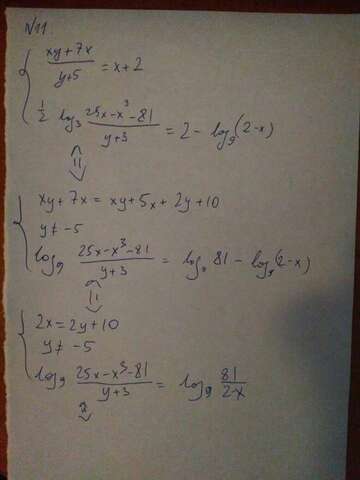 №11.
(xy+7x)/(y+5) = x+2
1/2 log₃ (25x-x³-81)/(y+3) = 2 - log₉(2-x)
⇔
xy+7x = xy+5x+2y+10
y ≠ -5
log₉ (25x-x³-81)/(y+3) = log₉ 81 - log₉(2-x)
⇔
2x = 2y+10
y ≠ -5
log₉ (25x-x³-81)/(y+3) = log₉ 81/(2-x)
⇔